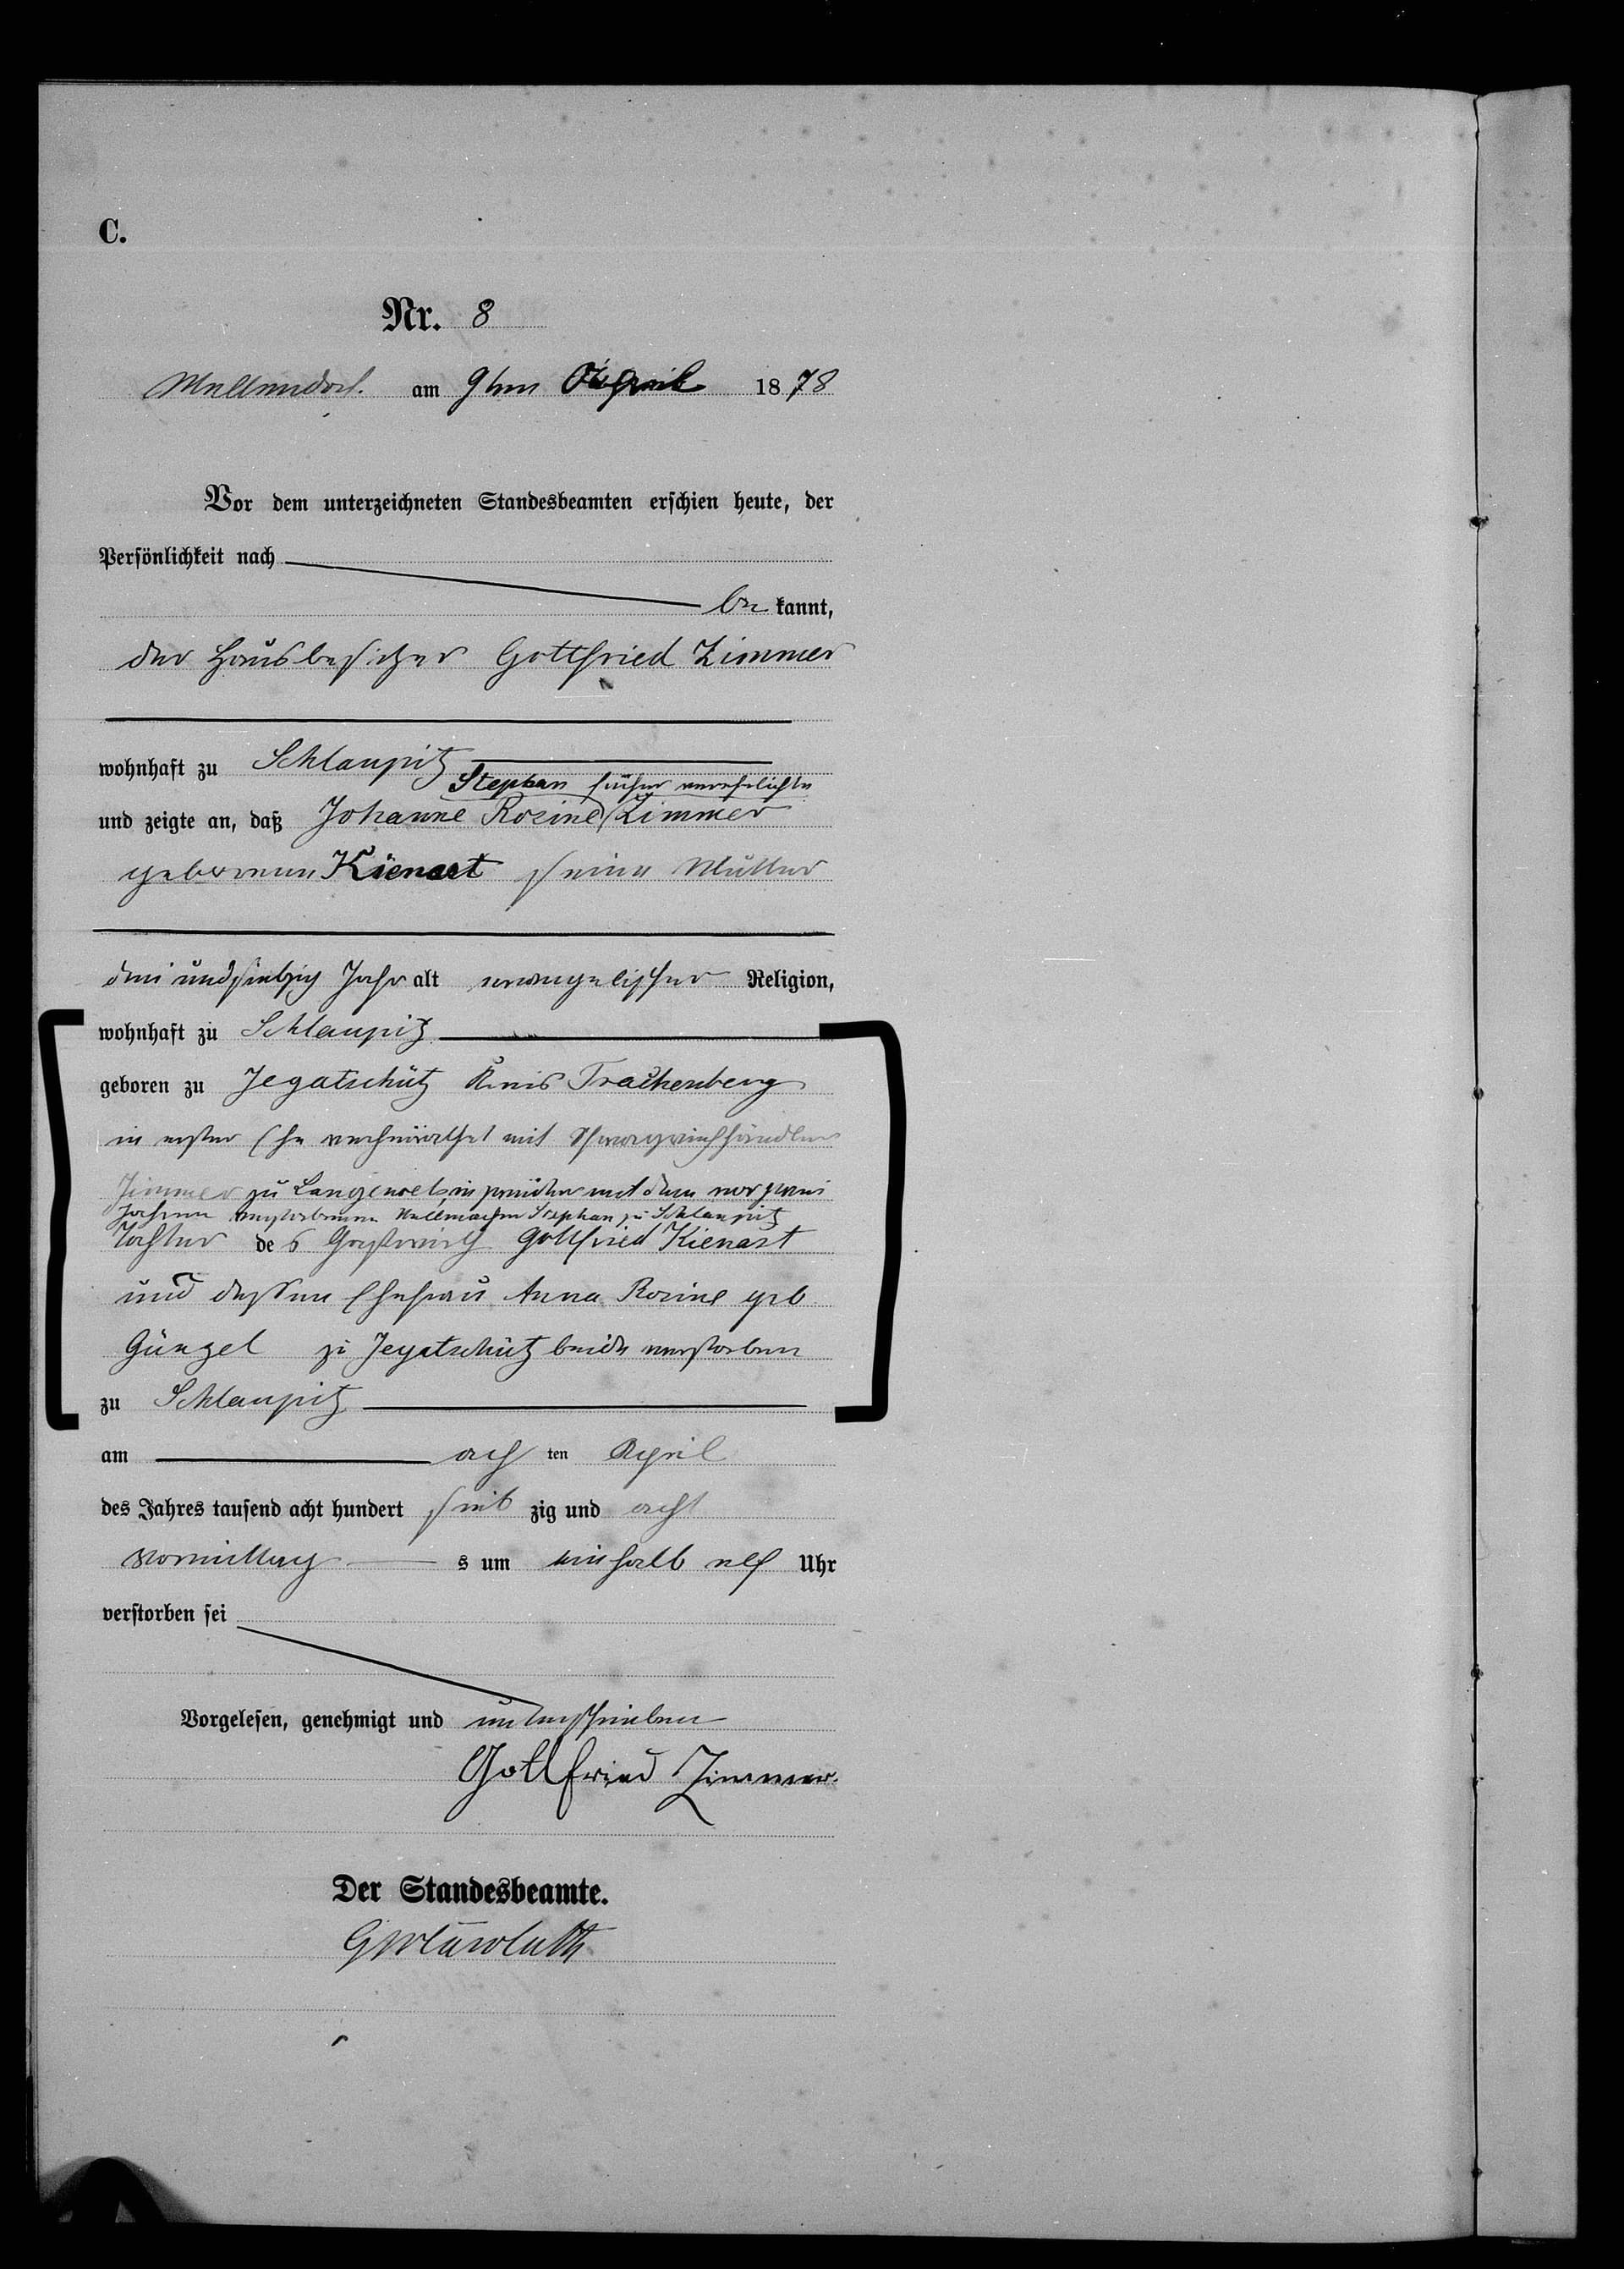 C.
Nr. 8
am 9ten April 1878
Vor dem unterzeichneten Standesbeamten erschien heute, der
Persönlichkeit nach
be kannt,
der Hausbesitzer Gottfried Zimmer
wohnhaft zu Schlaupitz
Stephan früher verehelichte
und zeigte an, daß Johanne Rosine Zimmer
geborenen Kienast seine Mutter
drei und siebzig Jahr alt evangelischer Religion,
wohnhaft zu Schlaupitz
geboren zu Jegatschütz Kreis Trachenberg
in erster Ehe verheirathet mit
Zimmer zu Langenoels in zweiter mit dem vor zwei
Jahren verstorbenen Stellmacher Stephan zu Schlaupitz
Tochter des Gastwirth Gottfried Kienast
und dessen Ehefrau Anna Rosine geb
Günzel zu Jegatschütz beide verstorben
zu Schlaupitz
am ach ten April
des Jahres tausend acht hundert sieb zig und acht
Vormittag s um einhalb elf Uhr
verstorben sei
Vorgelesen, genehmigt und unterschrieben
Gottfried Zimmer.
Der Standesbeamte.